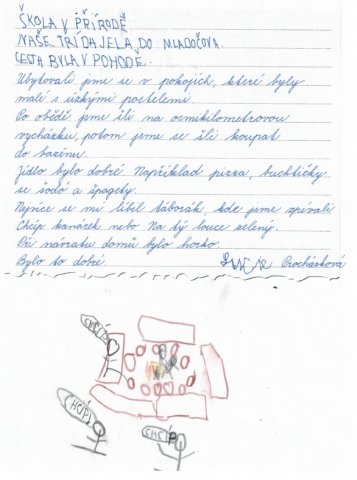 ŠKOLA V PŘÍRODĚ
NAŠE TŘÍDA JELA DO MLADOČOVA.
CESTA BYLA V POHODĚ.
Ubytovali jsme se v pokojích, které byly
malé s úzkými postelemi.
Po obědě jsme šli na osmikilometrovou
vycházku, potom jsme se šli koupat
do bazénu.
Jídlo bylo dobré. Například pizza, buchtičky
se šodó a špagety.
Nejvíce se mi líbil táborák, kde jsme zpívali
Chcíp kanárek nebo Na tý louce zelený.
Při návratu domů bylo horko.
Bylo to dobré. Procházková
CHCÍP
CHCÍP
CHCÍP